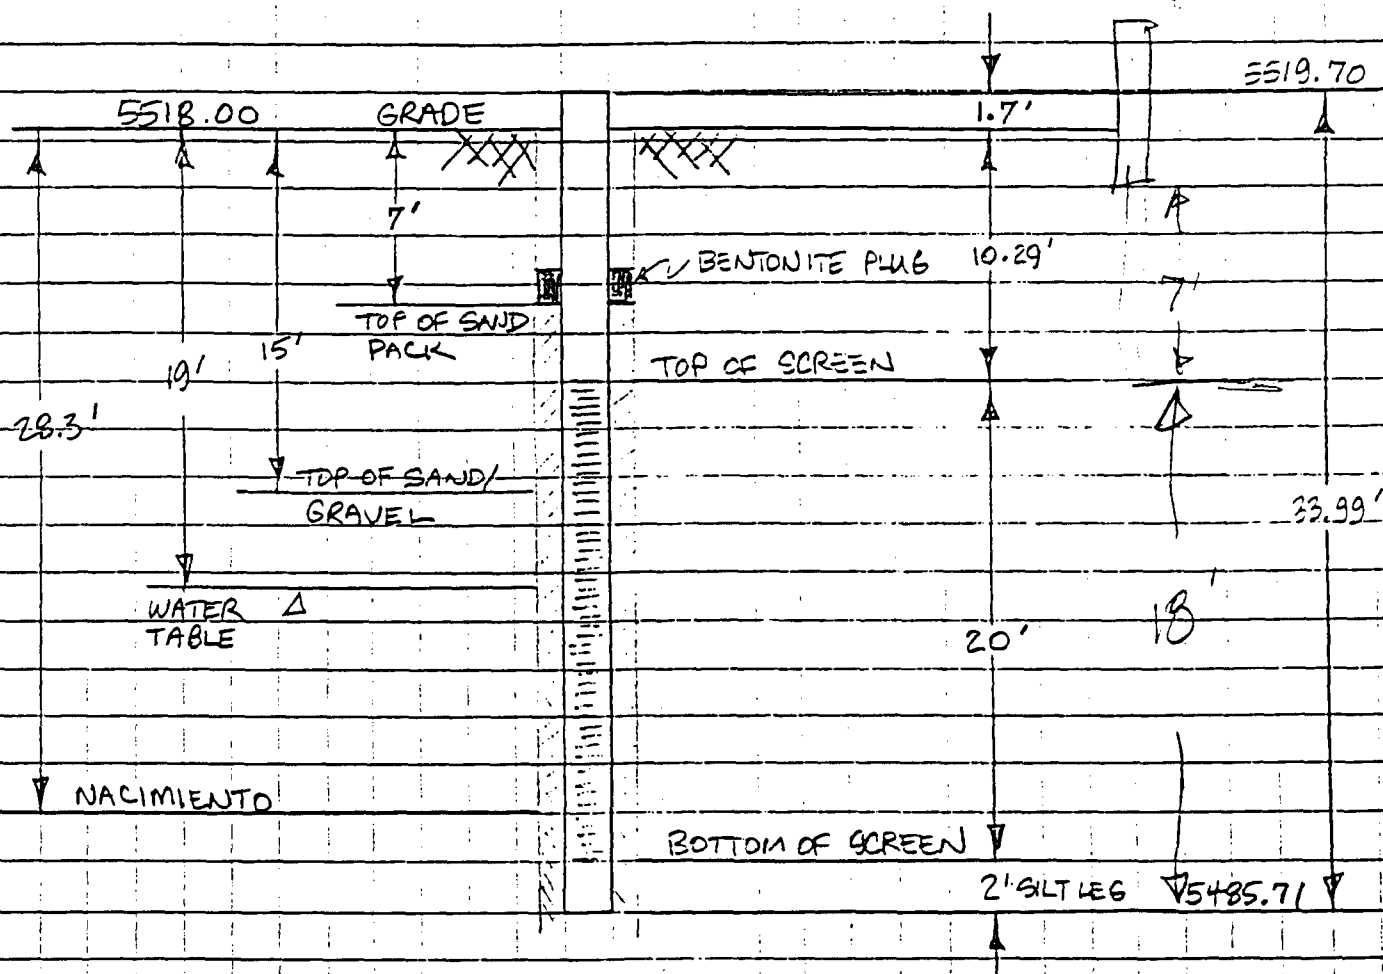 5519.70
5518.00 GRADE 1.7'
7'
BENTONITE PLUG 10.29'
7'
TOP OF SAND
PACK
15'
19'
TOP OF SCREEN
28.3'
TOP OF SAND/
GRAVEL
33.99'
WATER
TABLE
18'
20'
NACIMIENTO
BOTTOM OF SCREEN
2' SILT LEG 5485.71